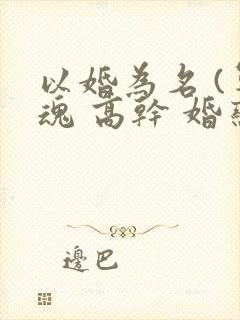 以婚為名（
魂 高幹 婚
邊巴